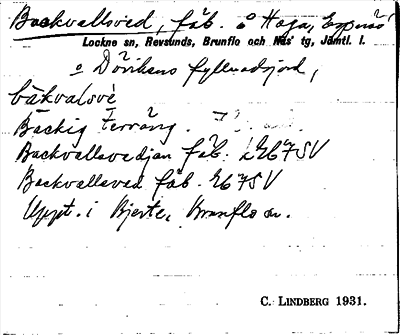 Backvallsved, fäb. å Haga, Espnäs
Lockne sn, Revsunds, Brunflo och Näs' tg, Jämtl. l.
o Dövikens fyllnadsjord,
bäkvalsvé
Backig terräng.
Backvallsvedjan fäb. Ek 7 SV
Backvallsved fäb. Ek 7 SV
Uppt. i Bjerte, Brunflo sn.
C. LINDBERG 1931.